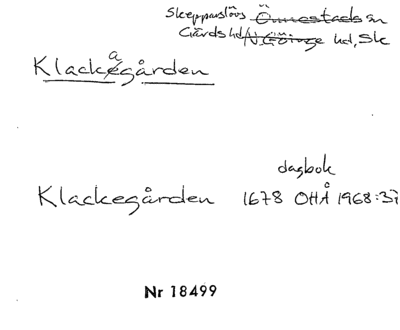 Skepparslövs Önnestads sn
Gärds hd/N Göinge hd, Sk
Klackagården
dagbok
Klackegården 1678 OHÅ 1968:37
Nr 18499